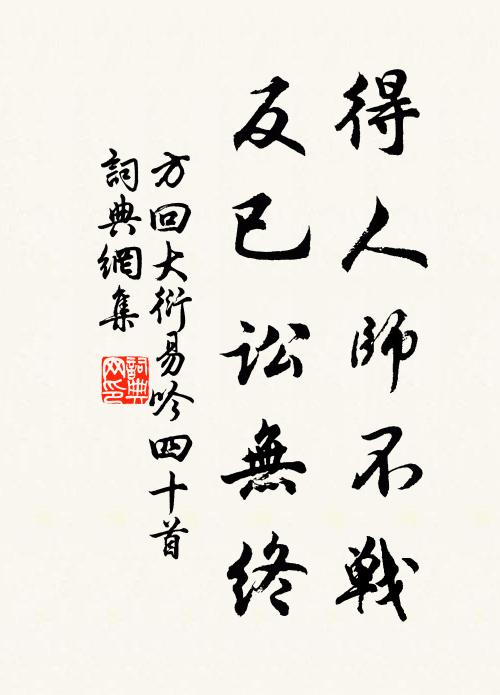 得人師不戰
反已訟無終
方回大衍易吟四十首
詞典網集
詞典網印